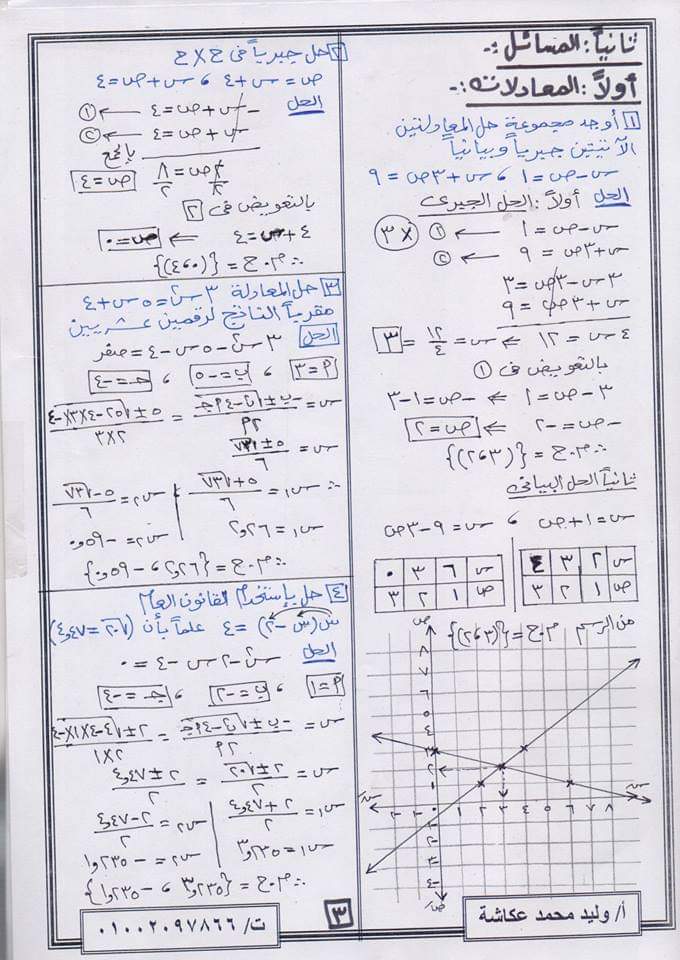 ثانياً: المسائل :-
أولاً: المعادلات :-
١ أوجد مجموعة حل المعادلتين
الآتيتين جبرياً وبيانياً
س - ص = ١ ، س + ٣ص = ٩
الحل أولاً: الحل الجبرى
س - ص = ١ ← ① × ٣
س + ٣ص = ٩ ← ②
٣س - ٣ص = ٣
س + ٣ص = ٩
٤س = ١٢ ← س = ١٢/٤ = ٣
بالتعويض فى ①
٣ - ص = ١ ← - ص = ١ - ٣
- ص = -٢ ← ص = ٢
∴ م.ح = {(٣،٢)}
ثانياً الحل البيانى
س = ١ + ص ، س = ٩ - ٣ص
س ٢ ٣ ٤
ص ١ ٢ ٣
س ٦ ٣ ٠
ص ١ ٢ ٣
من الرسم م.ح = {(٣،٢)}
٢ حل جبرياً فى ح × ح
ص = س + ٤ ، س + ص = ٤
الحل
- س + ص = ٤ ← ①
س + ص = ٤ ← ②
بالجمع
٢ص/٢ = ٨/٢ ص = ٤
بالتعويض فى ٢
٤ + س = ٤ ← ص = ٠
∴ م.ح = {(٠،٤)}
٣ حل المعادلة ٣س² = ٥س + ٤
مقرباً الناتج لرقمين عشريين
الحل ٣س² - ٥س - ٤ = صفر
P = ٣ ، ب = -٥ ، جـ = -٤
س = (-ب ± √(ب² - ٤Pجـ))/٢P = (٥ ± √(٢٥ - ٤×٣×-٤))/(٢×٣)
س = (٥ ± √٧٣)/٦
∴ س١ = (٥ + √٧٣)/٦ س٢ = (٥ - √٧٣)/٦
س١ = ٢,٢٦ س٢ = -٠,٥٩
∴ م.ح = {٢,٢٦ ، -٠,٥٩}
٤ حل بإستخدام القانون العام
س(س - ٢) = ٤ علماً بأن (√٢٠ = ٤,٤٧)
الحل س² - ٢س - ٤ = ٠
P = ١ ، ب = -٢ ، جـ = -٤
س = (-ب ± √(ب² - ٤Pجـ))/٢P = (٢ ± √(٤ - ٤×١×-٤))/(٢×١)
س = (٢ ± √٢٠)/٢ = (٢ ± ٤,٤٧)/٢
س١ = (٢ + ٤,٤٧)/٢ س٢ = (٢ - ٤,٤٧)/٢
س١ = ٣,٢٣٥ س٢ = -١,٢٣٥
∴ م.ح = {٣,٢٣٥ ، -١,٢٣٥}
أ/ وليد محمد عكاشة
٣
ت/ ٠١٠٠٢٠٩٧٨٦٦